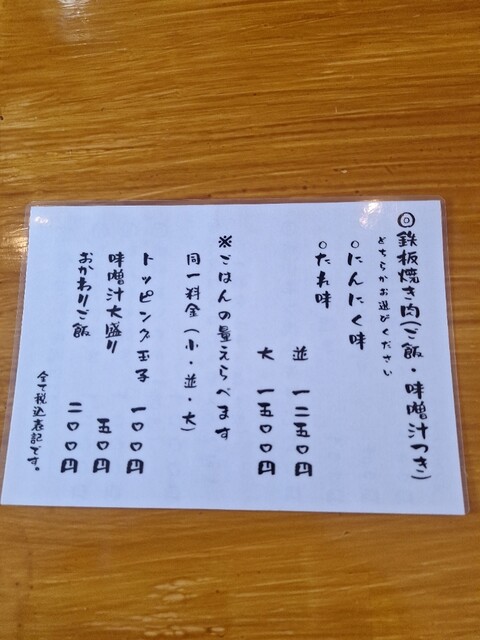 ◎鉄板焼き肉(ご飯・味噌汁つき)
どちらかお選びください
○にんにく味
○たれ味
並 一二五〇円
大 一五〇〇円
※ごはんの量えらべます
同一料金(小・並・大)
トッピング玉子 一〇〇円
味噌汁大盛り 五〇円
おかわりご飯 二〇〇円
全て税込表記です。